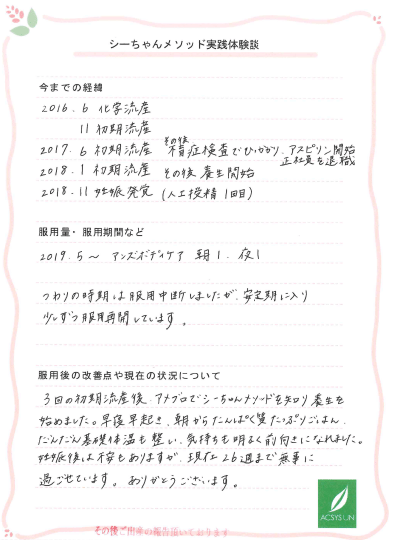 シーちゃんメソッド実践体験談
今までの経緯
2016.6 化学流産
11 初期流産
その後
2017.6 初期流産 不育症検査でひっかかり、アスピリン開始
正社員を退職
2018.1 初期流産 その後 養生開始
2018.11 妊娠発覚 (人工授精1回目)
服用量・服用期間など
2019.5~ アンズボディケア 朝1.夜1
つわりの時期は服用中断しましたが、安定期に入り
少しずつ服用再開しています。
服用後の改善点や現在の状況について
3回の初期流産後、アメブロでシーちゃんメソッドを知り養生を
始めました。早寝早起き、朝からたんぱく質たっぷりごはん、
だんだん基礎体温も整い、気持ちも明るく前向きになれました。
妊娠後は不安もありますが、現在26週まで無事に
過ごせています。ありがとうございます。
ACSYSLIN
その後ご出産の報告頂いております